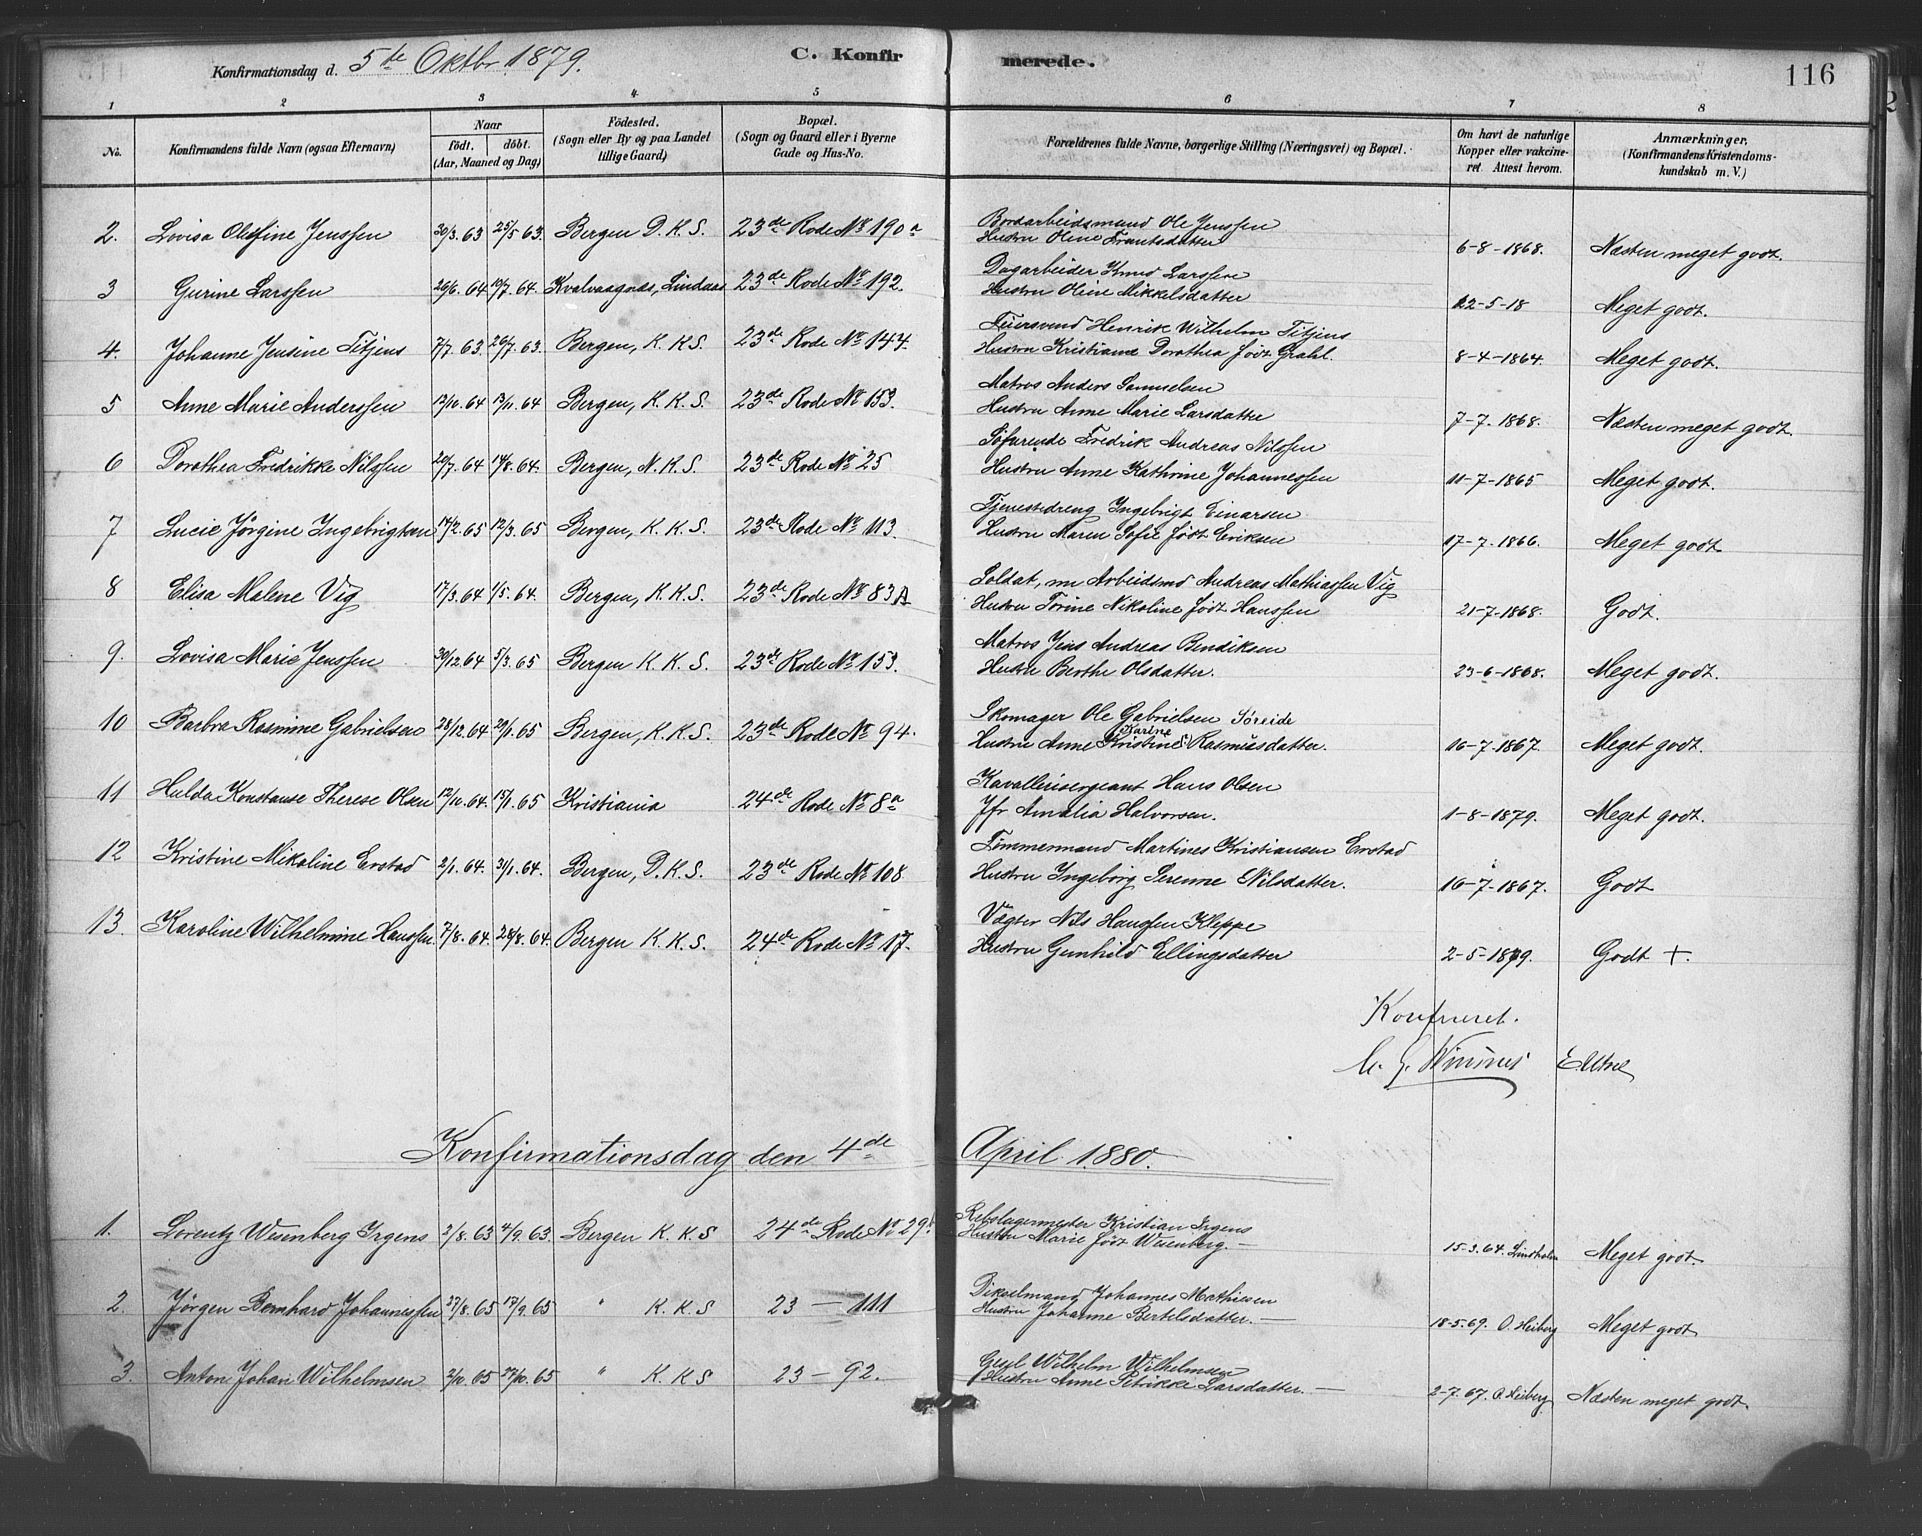 Konfirmationsdag d. 5te Oktbr 1879. C. Konfirmerede. 116
1 2 3 4 5 6 7 8
No. Konfirmandens fulde Navn (ogsaa Efternavn) Naar født. døbt. (Aar, Maaned og Dag) Fødested. (Sogn eller By og paa Landet tillige Gaard) Bopæl. (Sogn og Gaard eller i Byerne Gade og Hus-No. Forældrenes fulde Navne, borgerlige Stilling (Næringsvei) og Bopæl. Om havt de naturlige Kopper eller vakcineret Attest herom. Anmærkninger. (Konfirmandens Kristendomskundskab m. V.)
2. Lovisa Olefine Jenssen 20/3.63 25/5.63. Bergen D.K.S. 23de Rode No 190a Bordarbeidsmand Ole Jenssen
Hustru Oline Frantsdatter 6-8-1868. Næsten meget godt.
3 Gurine Larssen 26/6.64 10/7.64. Kvalvaagnæs, Lindaas 23de Rode No 192. Dagarbeider Knud Larssen
Hustru Oline Mikkelsdatter 22-5-18 Meget godt.
4. Johanne Jensine Titjens 7/7.63. 26/7.63. Bergen, K.K.S. 23de Rode No 144. Feiersvend Henrik Wilhelm Titjens
Hustru Kristiane Dorothea født Grahl. 8-4-1864. Meget godt.
5 Anne Marie Anderssen 12/10.64 13/11.64 Bergen, K.K.S. 23de Rode No 153. Matros Anders Samuelsen
Hustru Anne Marie Larsdatter 7-7-1868. Næsten meget godt.
6 Dorothea Fredrikke Nilssen 20/7.64 14/8.64. Bergen, N.K.S. 23de Rode No 25 Søfarende Fredrik Andreas Nilssen
Hustru Anne Kathrine Johannessen 11-7-1865 Meget godt.
7 Lucie Jørgine Ingebrigtsen 14/2.65 12/3.65 Bergen, K.K.S. 23de Rode No 113. Tjenestdreng Ingebrigt Einarsen
Hustru Maren Sofie født Eriksen 17-7-1866. Meget godt
8 Elisa Malene Vig 17/3.64 1/5.64. Bergen, K.K.S. 23de Rode No 83A Soldat, nu Arbeidsmd Andreas Mathiassen Vig
Hustru Torine Nikoline født Hanssen 21-7-1868. Godt.
9. Lovisa Marie Jenssen 30/12.64 5/3.65 Bergen K.K.S. 23de Rode No 153. Matros Jens Andreas Bendiksen
Hustru Berthe Olsdatter. 23-6-1868. Meget godt.
10 Barbra Rasmine Gabrielsen 28/12.64 29/1.65 Bergen, K.K.S. 23de Rode No 94. Skomager Ole Gabrielsen Søreide
Karine
Hustru Anne Kristine Rasmusdatter. 16-7-1867 Meget godt.
11 Hulda Konstanse Therese Olsen 12/10.64. 15/1.65 Kristiania 24de Rode No 8a Kavallerisergeant Hans Olsen
Jfr Amalia Halvorsen. 1-8-1879. Meget godt.
12 Kristine Nikoline Erstad 2/1.64. 31/1.64. Bergen, D.K.S. 23de Rode No 108 Tømmermand Martines Kristiansen Erstad
Hustru Ingeborg Serenne Nilsdatter. 16-7-1867. Godt
13. Karoline Wilhelmine Hanssen 7/8.64. 28/8.64. Bergen K.K.S. 24de Rode No 17. Vægter Nils Hanssen Kleppe
Hustru Gunhild Ellingsdatter 2-5-1879. Godt +.
Konfereret.
Konfirmationsdag den 4de April 1880.
1. Lorentz Wesenberg Irgens 2/8.63 4/9.63. Bergen K.K.S 24de Rode No 29b Rebslagermester Kristian Irgens
Hustru Marie født Wesenberg. — 15-3.64. Lindholm Meget godt.
2. Jørgen Bernhard Johannessen 27/8.65 17/9.65 " K.K.S 23 — 111 Dikselmand Johannes Mathiesen
Hustru Johanne Bertelsdatter. — 18-5.69. O. Heiberg Meget godt
3. Anton Johan Wilhelmsen 2/10.65 27/10.65 " K.K.S 23 — 92. Gesel Wilhelm Wilhelmsen
Hustru Anne Petrikke Larsdatter. — 2-7.67. O. Heiberg Næsten meget godt.